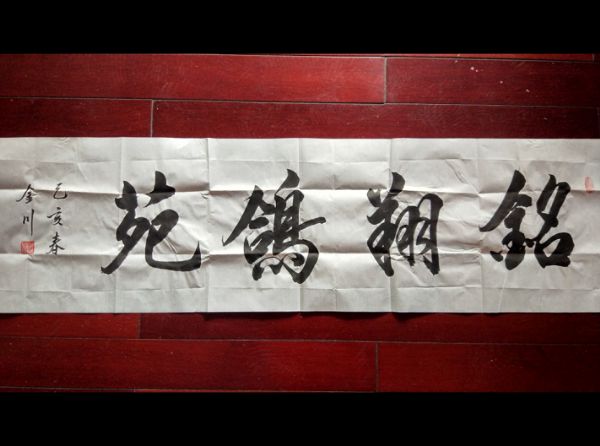 銘翔鴿苑
己亥春
金川